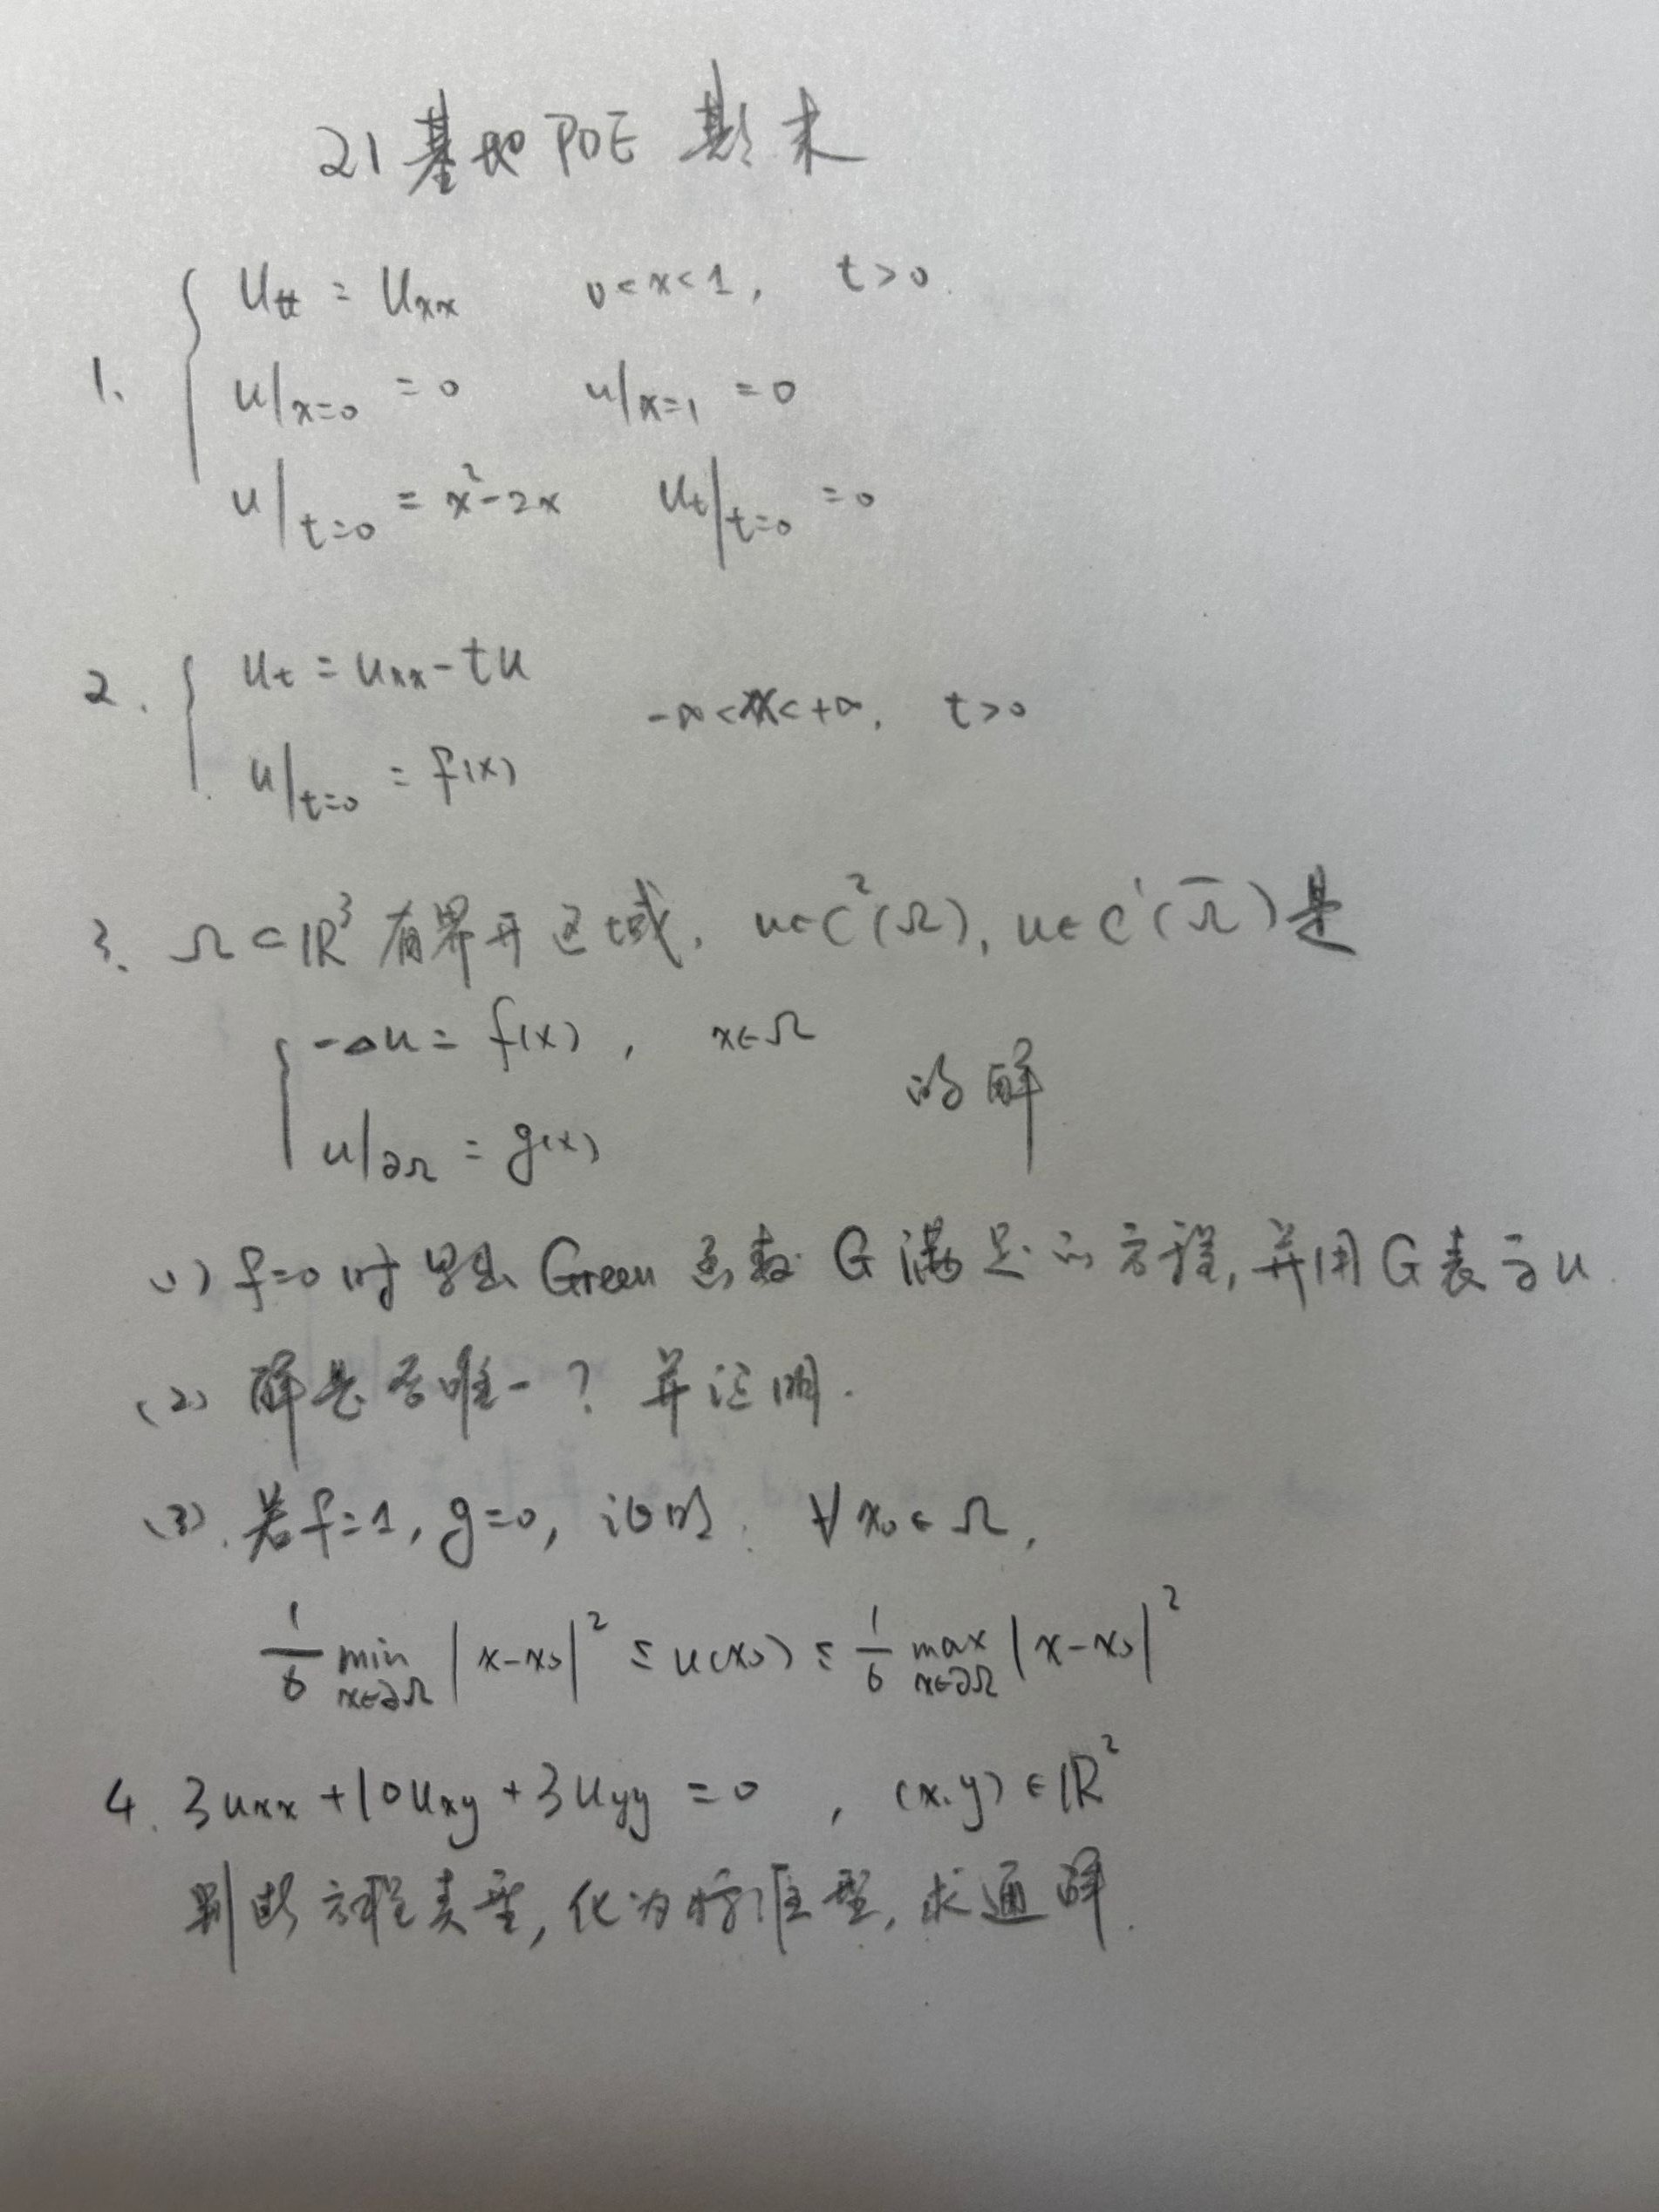 21基地PDE期末
1. { u_tt = u_xx 0<x<1, t>0.
u|_{x=0} = 0 u|_{x=1} = 0
u|_{t=0} = x²-2x u_t|_{t=0} = 0
2. { u_t = u_xx - tu
-∞<x<+∞, t>0
u|_{t=0} = f(x)
3. Ω⊂ℝ³有界开区域, u∈C²(Ω), u∈C¹(Ω̅)是
{ -Δu = f(x), x∈Ω
的解
u|_{∂Ω} = g(x)
(1) f=0时写出Green函数G满足的方程,并用G表示u.
(2) 解是否唯一?并证明.
(3). 若f=1, g=0, 证明: ∀x₀∈Ω,
1/6 min_{x∈∂Ω} |x-x₀|² ≤ u(x₀) ≤ 1/6 max_{x∈∂Ω} |x-x₀|²
4. 3u_xx + 10u_xy + 3u_yy = 0, (x,y)∈ℝ²
判断方程类型,化为标准型,求通解.